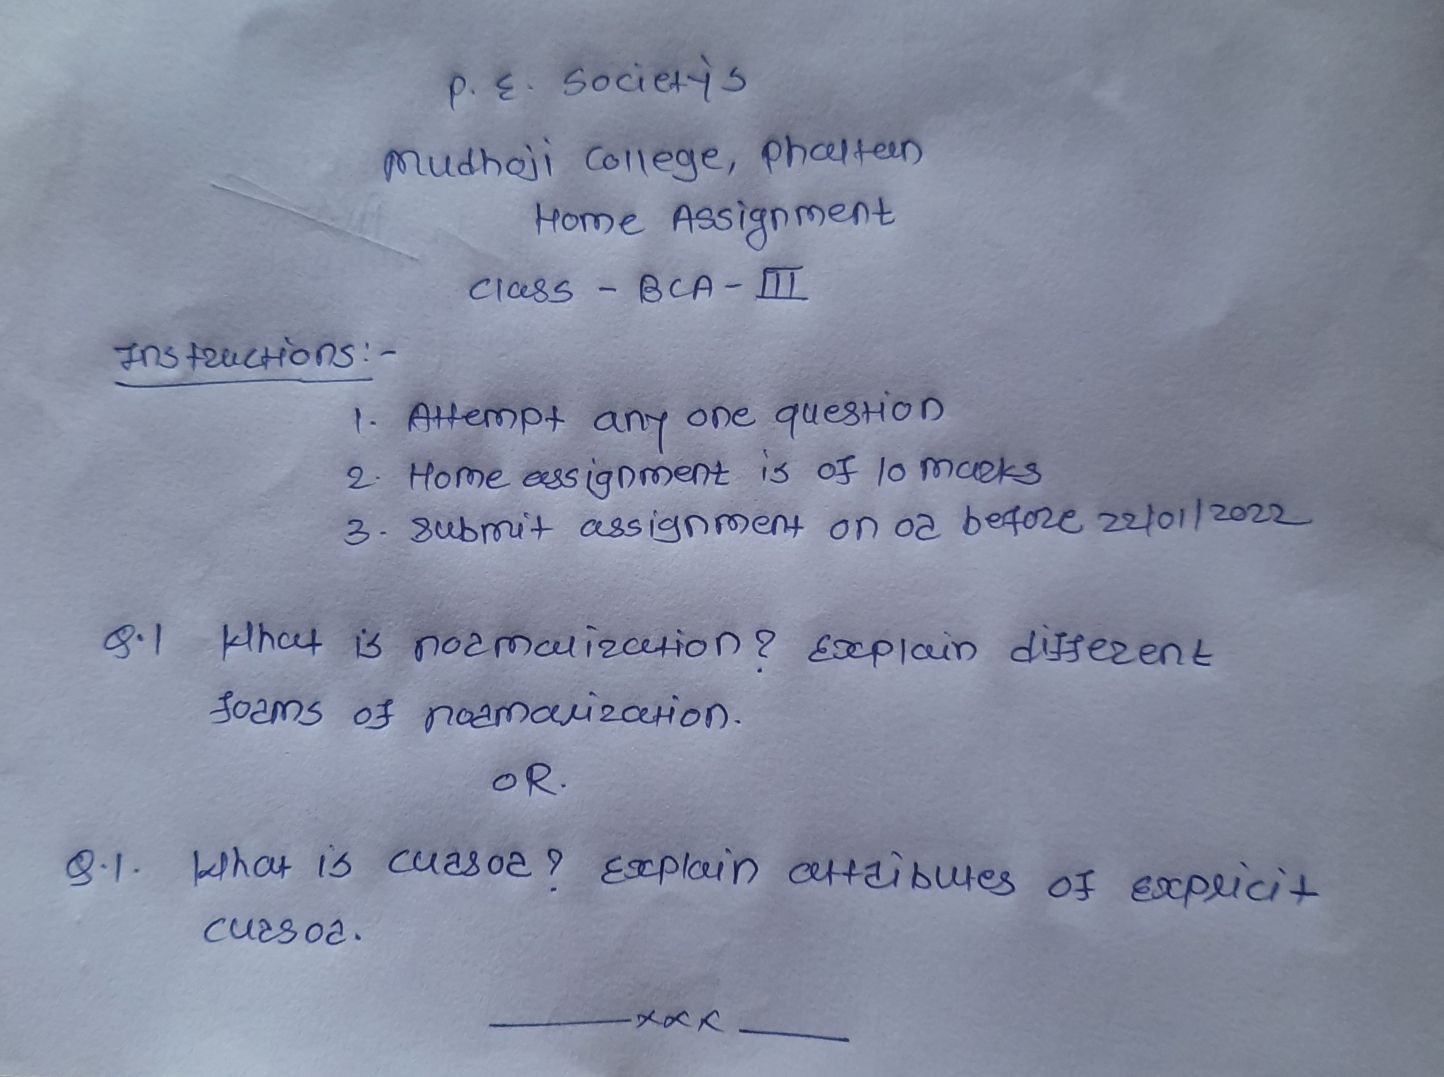 P. E. Society's
Mudhoji College, Phaltan
Home Assignment
Class - BCA - III
Instructions:-
1. Attempt any one question
2. Home assignment is of 10 marks
3. Submit assignment on or before 22/01/2022
Q.1 What is normalization? Explain different
forms of normalization.
OR.
Q.1. What is cursor? Explain attributes of explicit
cursor.
xxx